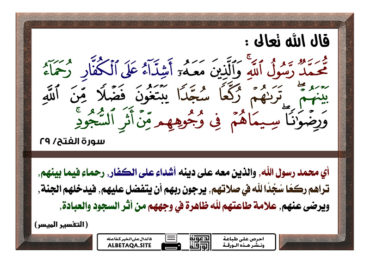 قال الله تعالى :
مُّحَمَّدٌ رَّسُولُ ٱللَّهِۚ وَٱلَّذِينَ مَعَهُۥٓ أَشِدَّآءُ عَلَى ٱلۡكُفَّارِ رُحَمَآءُ
بَيۡنَهُمۡۖ تَرَىٰهُمۡ رُكَّعٗا سُجَّدٗا يَبۡتَغُونَ فَضۡلٗا مِّنَ ٱللَّهِ
وَرِضۡوَٰنٗاۖ سِيمَاهُمۡ فِي وُجُوهِهِم مِّنۡ أَثَرِ ٱلسُّجُودِۚ
سورة الفتح/ ٢٩
أي محمد رسول الله، والذين معه على دينه أشداء على الكفار، رحماء فيما بينهم،
تراهم ركعًا سُجَّدًا لله في صلاتهم، يرجون ربهم أن يتفضل عليهم، فيدخلهم الجنة،
ويرضى عنهم، علامة طاعتهم لله ظاهرة في وجههم من أثر السجود والعبادة.
( التفسير الميسر)
احرص على طباعة
ونشر هذه الورقة
فالدال على الخير كفاعله
ALBETAQA.SITE